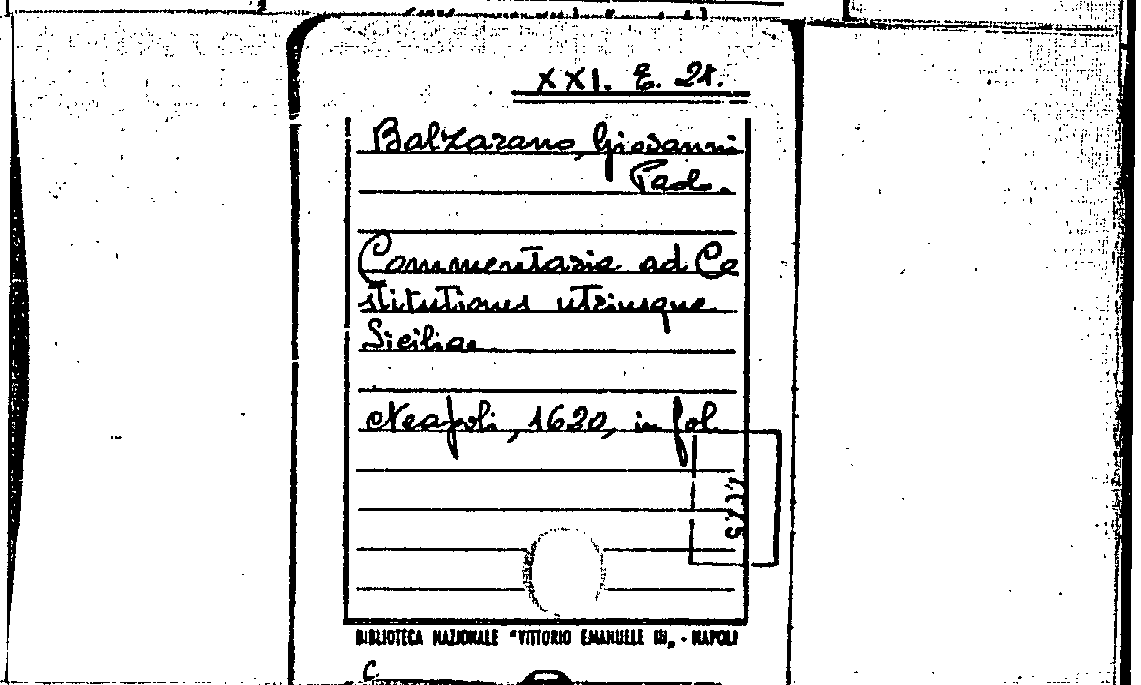 XXI. E. 28.
Balzarano, Giovanni
Paolo.
Commentaria ad Co
stitutiones utriusque
Siciliae
Neapoli, 1620, in fol.
BIBLIOTECA NAZIONALE "VITTORIO EMANUELE III„ - NAPOLI
C